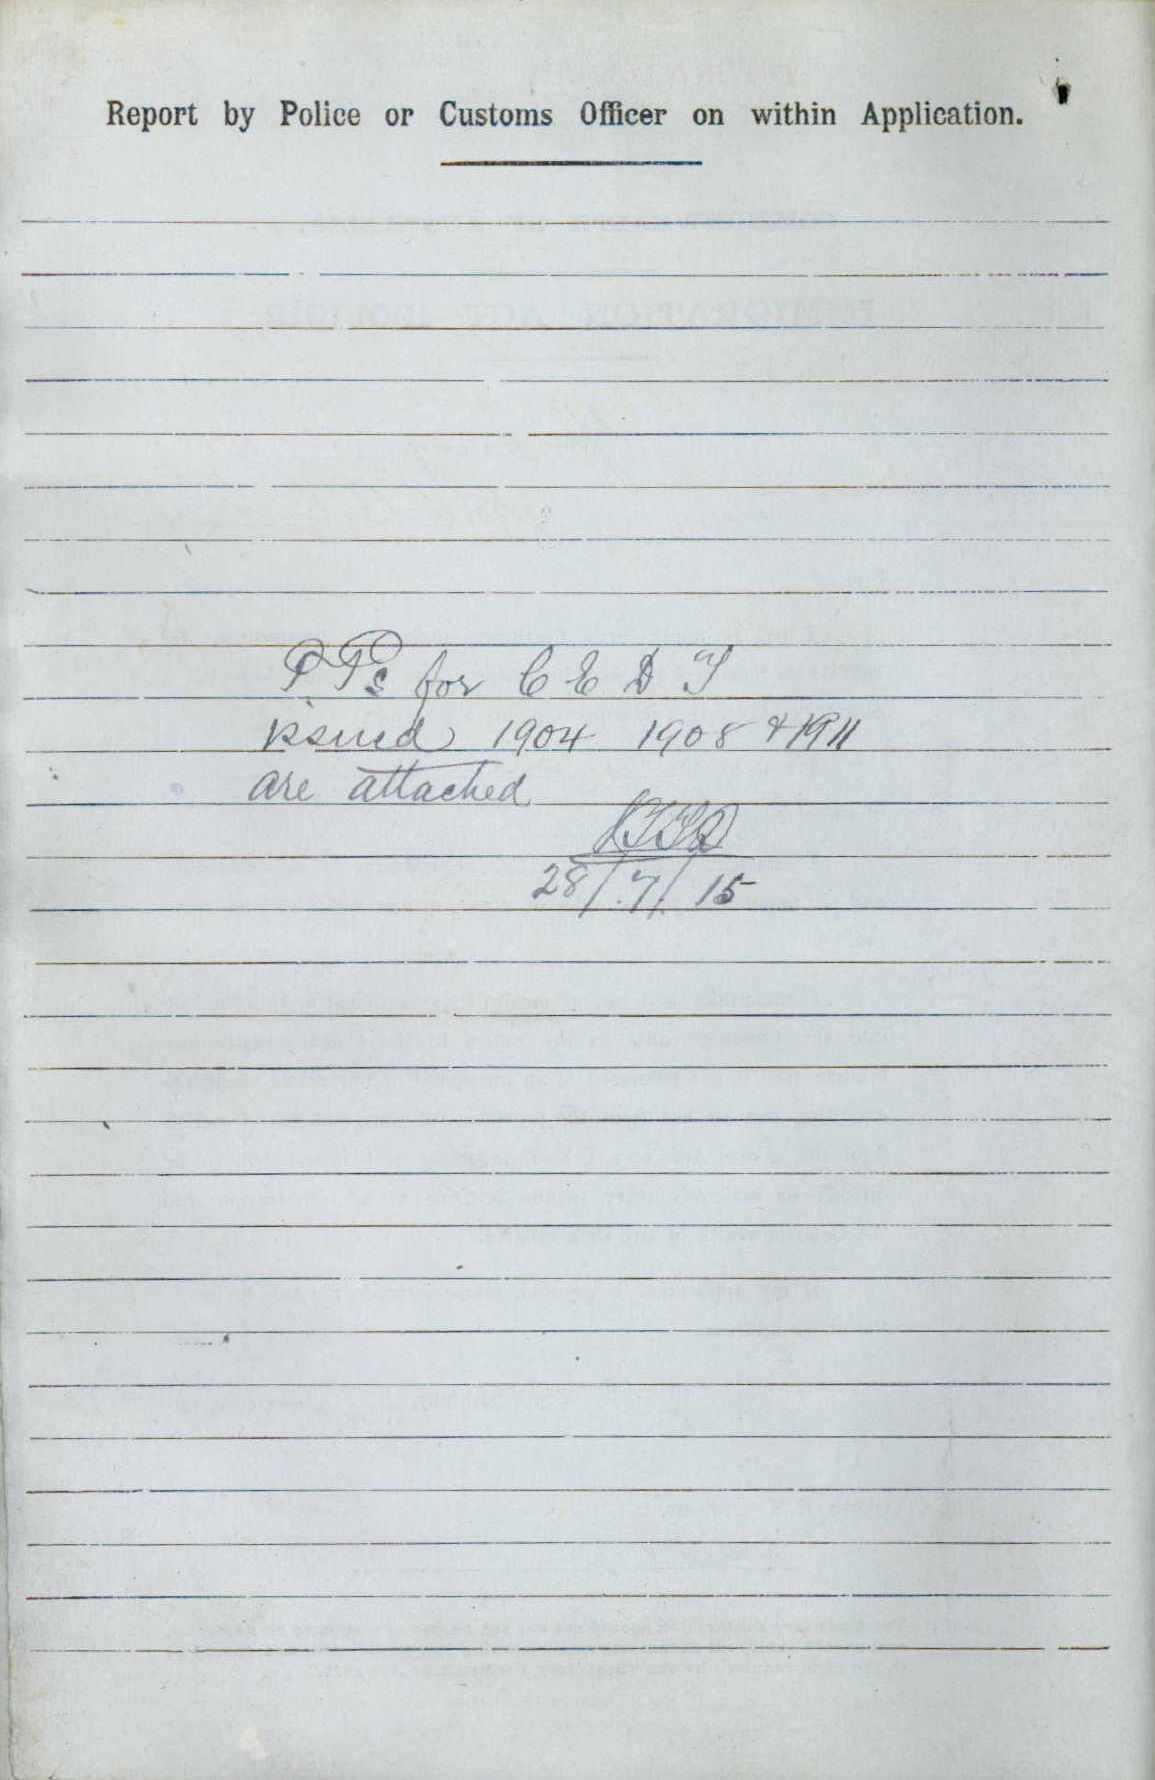 Report by Police or Customs Officer on within Application.
P Ps for C E D T
issued 1904 1908 & 1911
are attached
28/7/15